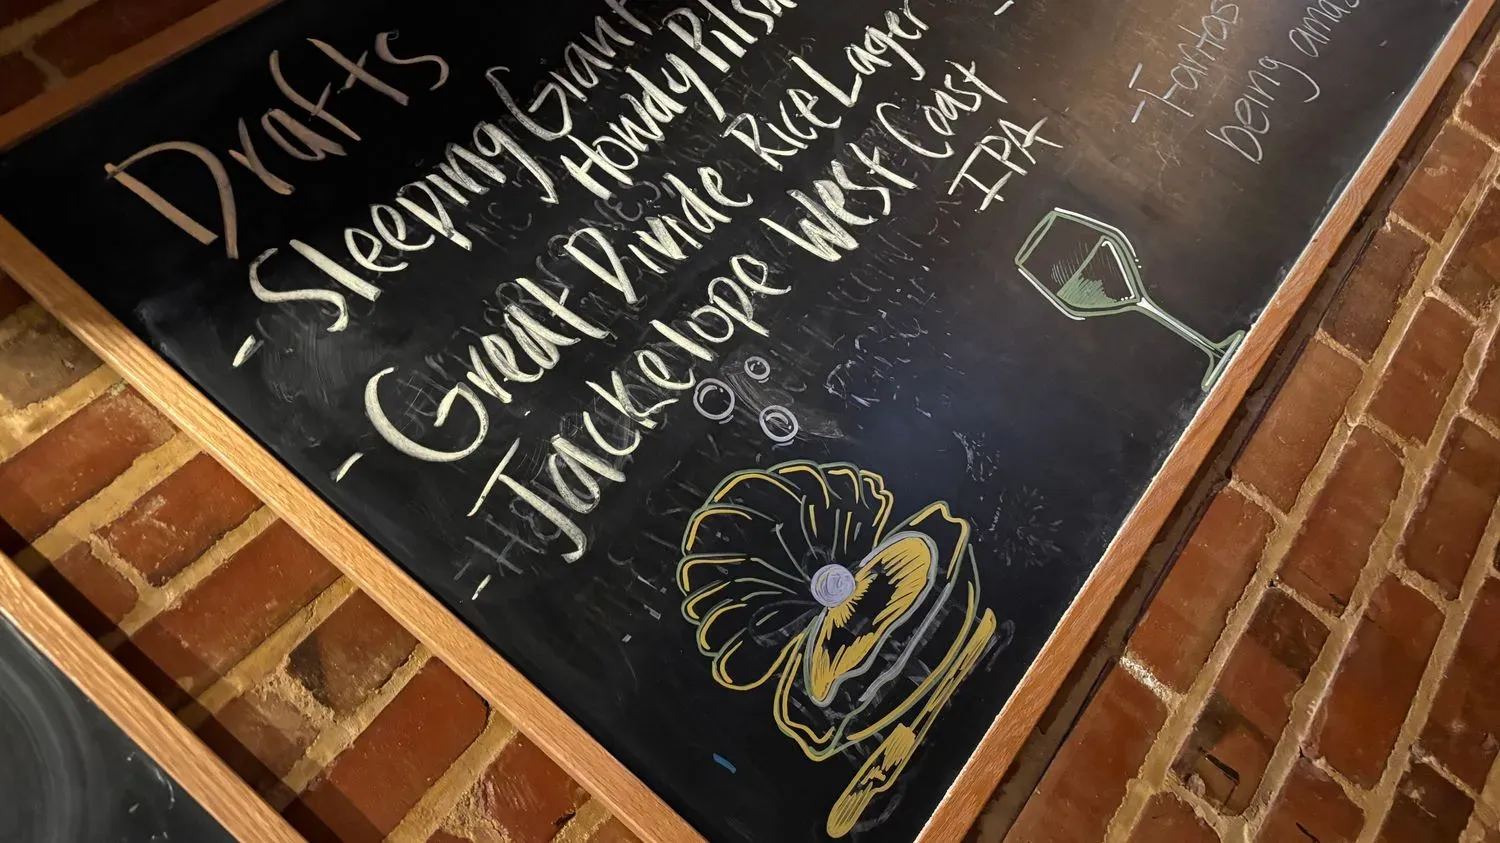 Drafts
- Sleeping Giant
Howdy Pils
- Great Divide Rice Lager
- Jackelope West Coast
IPA
-
- Fantas
being amaz